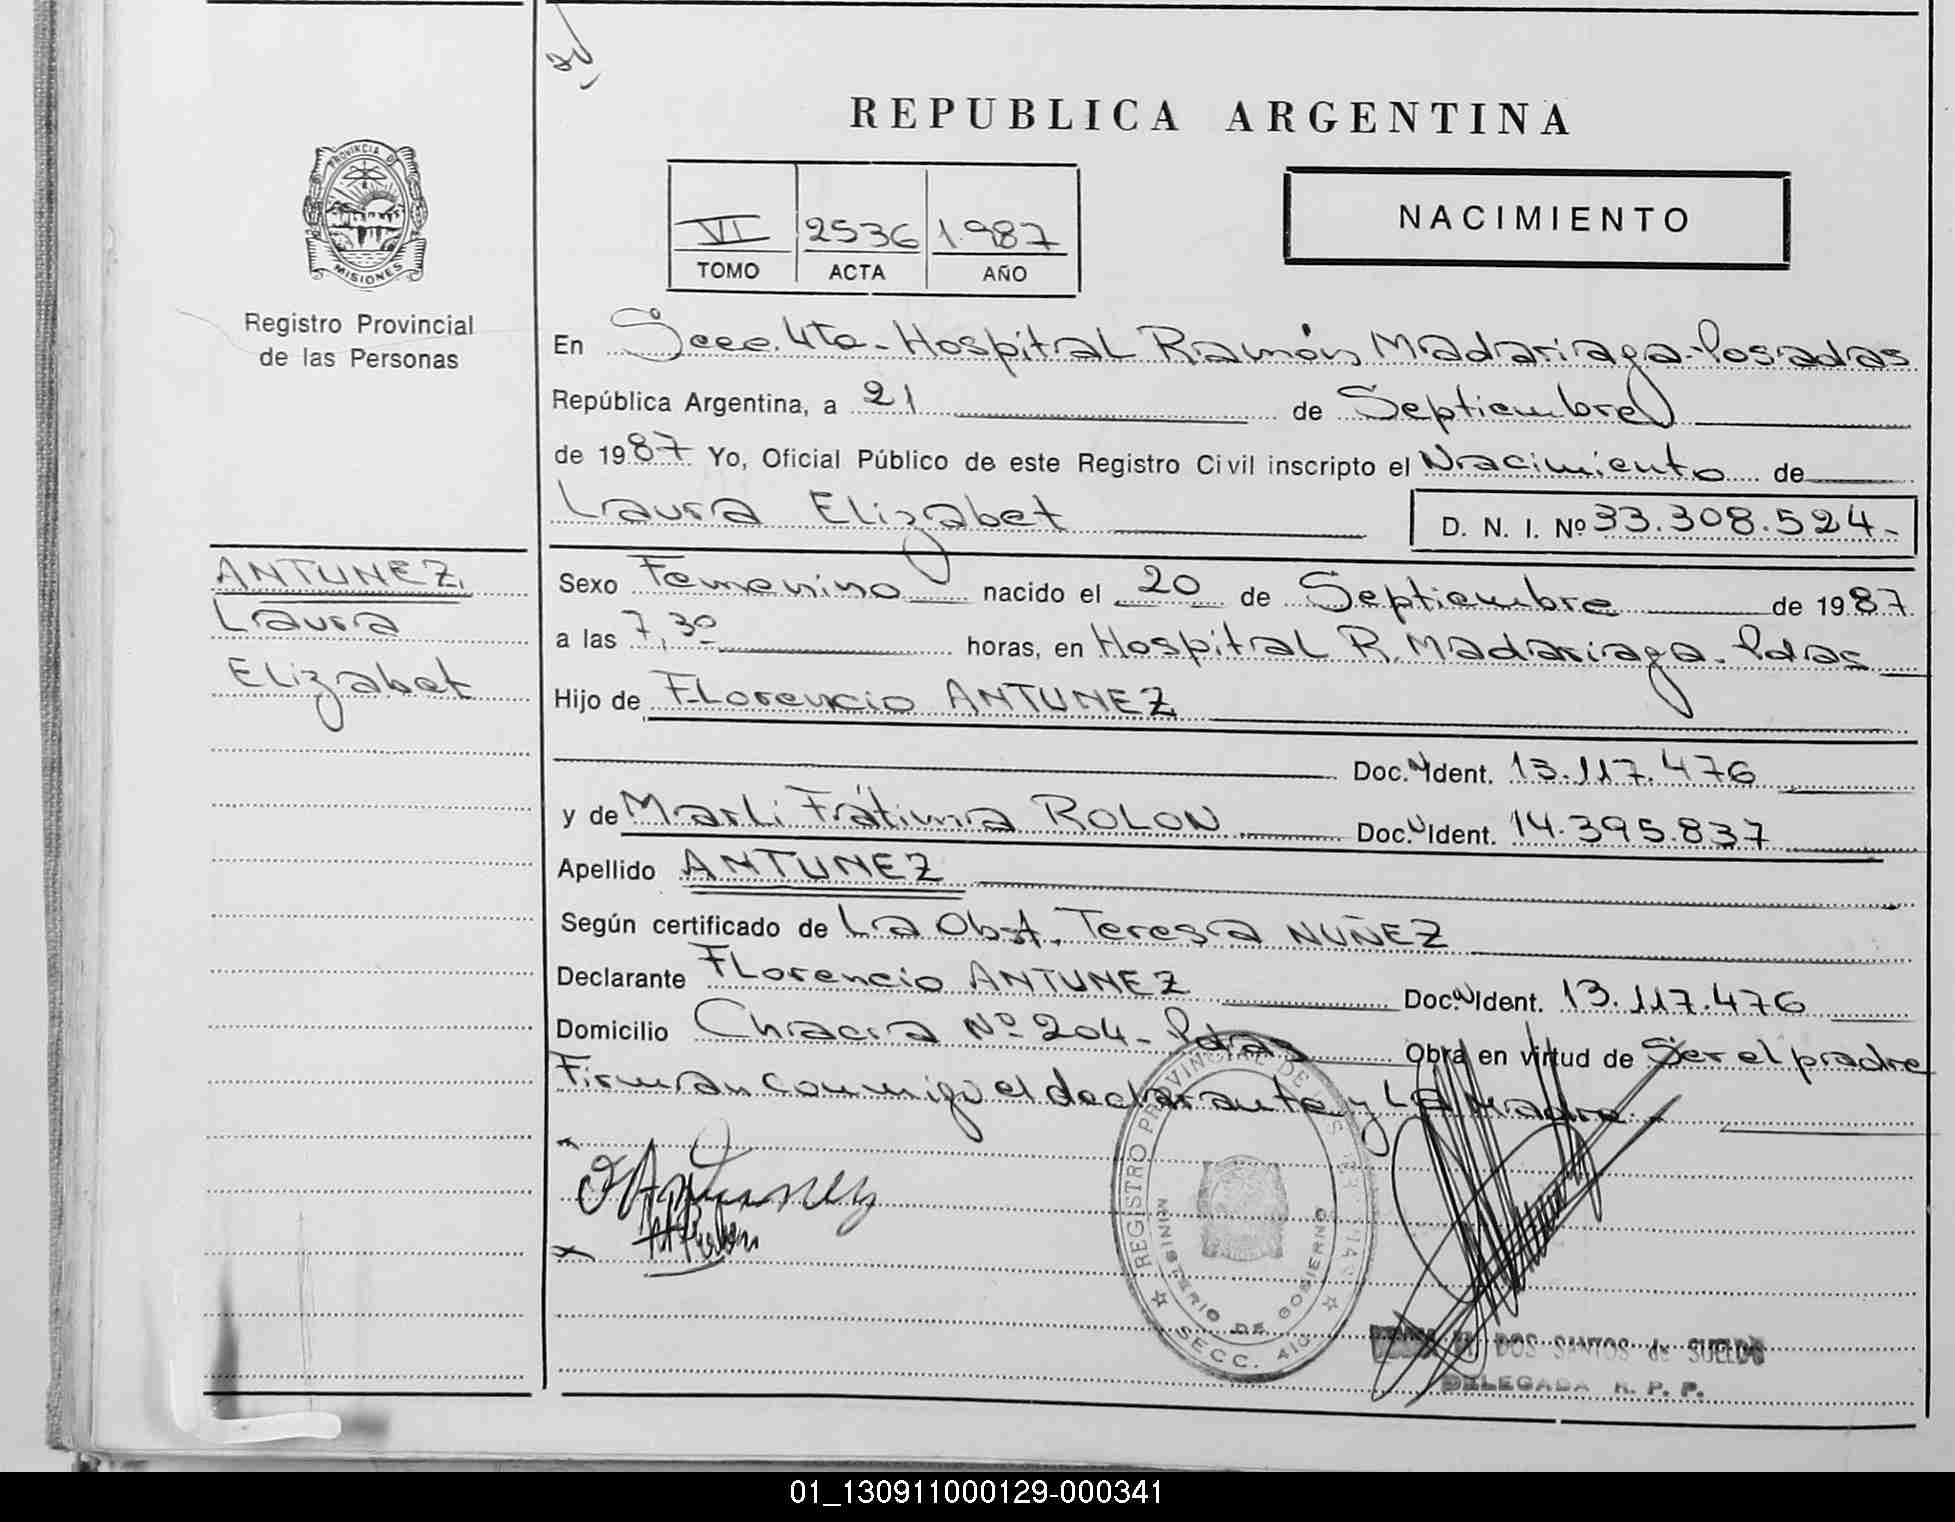 REPUBLICA ARGENTINA
PROVINCIA DE
MISIONES
Registro Provincial
de las Personas
VI 2536 1.987
TOMO ACTA AÑO
NACIMIENTO
En Secc. 4ta - Hospital Ramón Madariaga - Posadas
República Argentina, a 21 de Septiembre
de 1987 Yo, Oficial Público de este Registro Civil inscripto el Nacimiento de
Laura Elizabet D. N. I. Nº 33.308.524.-
ANTUNEZ,
Laura
Elizabet
Sexo Femenino nacido el 20 de Septiembre de 1987.
a las 7,30 horas, en Hospital R. Madariaga - Pdas
Hijo de Florencio ANTUNEZ
Doc. N Ident. 13.117.476
y de Marli Fátima ROLON Doc. N Ident. 14.395.837
Apellido ANTUNEZ
Según certificado de La Obst. Teresa NUÑEZ
Declarante Florencio ANTUNEZ Doc. N Ident. 13.117.476
Domicilio Chacra Nº 204 - Pdas Obra en virtud de Ser el padre
Firman conmigo el declarante y La Madre.-
F Antunez
REGISTRO PROVINCIAL DE LAS
MINISTERIO DE GOBIERNO
SECC. 4ta
DOS SANTOS de SUELDO
DELEGADA R. P. P.
01_130911000129-000341